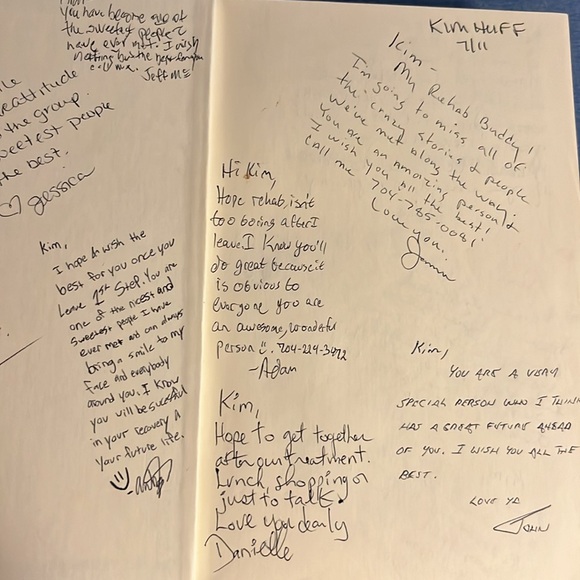 you have become one of
the sweetest people I
have ever met. I wish
nothing but the best for you
call me.
Jeff M
attitude
the group.
sweetest people
the best.
♡ Jessica
Kim,
I hope & wish the
best for you once you
leave 1st Step. You are
one of the nicest and
sweetest people I have
ever met and can always
bring a smile to my
face and everybody
around you. I know
you will be sucessful
in your recovery &
your future life.
KIM HUFF
7/11
Kim -
My Rehab Buddy!
I'm going to miss all of
the crazy stories & people
we've met along the way.
You are an amazing person &
I wish you all the best!
Call me 704-785-0081
Love you.
Hi Kim,
Hope rehab, isn't
too boring after I
leave. I know you'll
do great because it
is obvious to
everyone you are
an awesome, wonderful
person ☺. 704-224-3492
-Adam
Kim,
Hope to get together
after our treatment.
Lunch, shopping or
just to talk.
Love you dearly
Danielle
Kim,
YOU ARE A VERY
SPECIAL PERSON WHO I THINK
HAS A GREAT FUTURE AHEAD
OF YOU. I WISH YOU ALL THE
BEST.
LOVE YA
JOHN